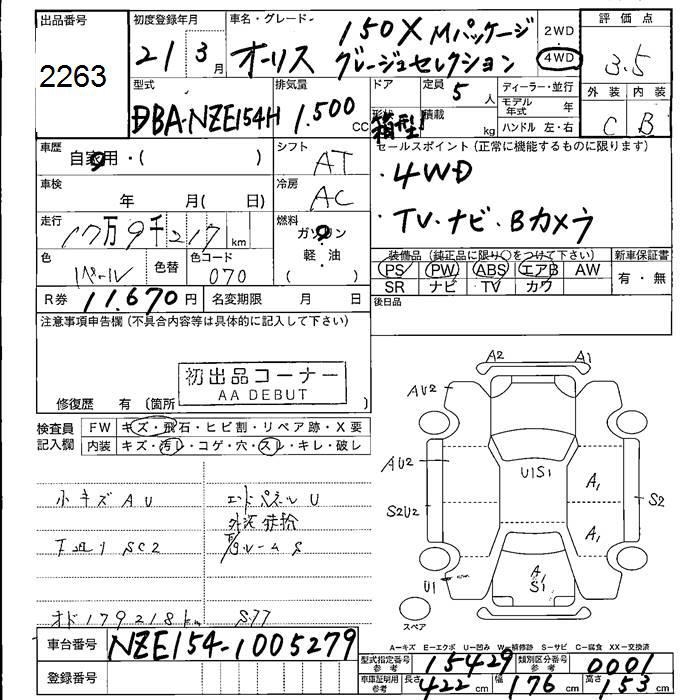 出品番号
2263
初度登録年月
21 3月
車名・グレード
オーリス 150X Mパッケージ
グレージュセレクション
2WD
4WD
評価点
3.5
外装 内装
C B
型式
DBA-NZE154H
排気量
1.500 cc
ドア
形状
箱型
定員 5 人
積載 kg
ディーラー・並行
モデル年式 年
ハンドル 左・右
車歴
自家用・( )
シフト
AT
セールスポイント(正常に機能するものに限ります)
・4WD
・TV・ナビ・Bカメラ
車検
年 月( 日)
冷房
AC
走行
17万9千217 km
燃料
ガソリン
軽・油
( )
色
パール
色替
色コード
070
装備品(純正品に限り○をつけて下さい)
PS PW ABS エアB AW
SR ナビ TV カワ
新車保証書
有・無
後日品
R券 11.670円
名変期限 月 日
注意事項申告欄(不具合内容等は具体的に記入して下さい)
初出品コーナー
AA DEBUT
修復歴 有(箇所 )
検査員記入欄
FW キズ・飛石・ヒビ割・リペア跡・X要
内装 キズ・汚レ・コゲ・穴・スレ・キレ・破レ
小キズ AU
エンドパネル U
外装
下廻り SC2
フレーム S
オド179218km
S77
A2 A1
AU2
AU2
U1S1
A1
S2U2
S2
A1
U1
A
S1
スペア
A−キズ E−エクボ U−凹み W−補修跡 S−サビ C−腐食 XX−交換済
車台番号 NZE154-1005279
登録番号
型式指定番号参考 15429
類別区分番号参考 0001
車庫証明用参考 長さ 422cm 幅 176cm 高さ 153cm